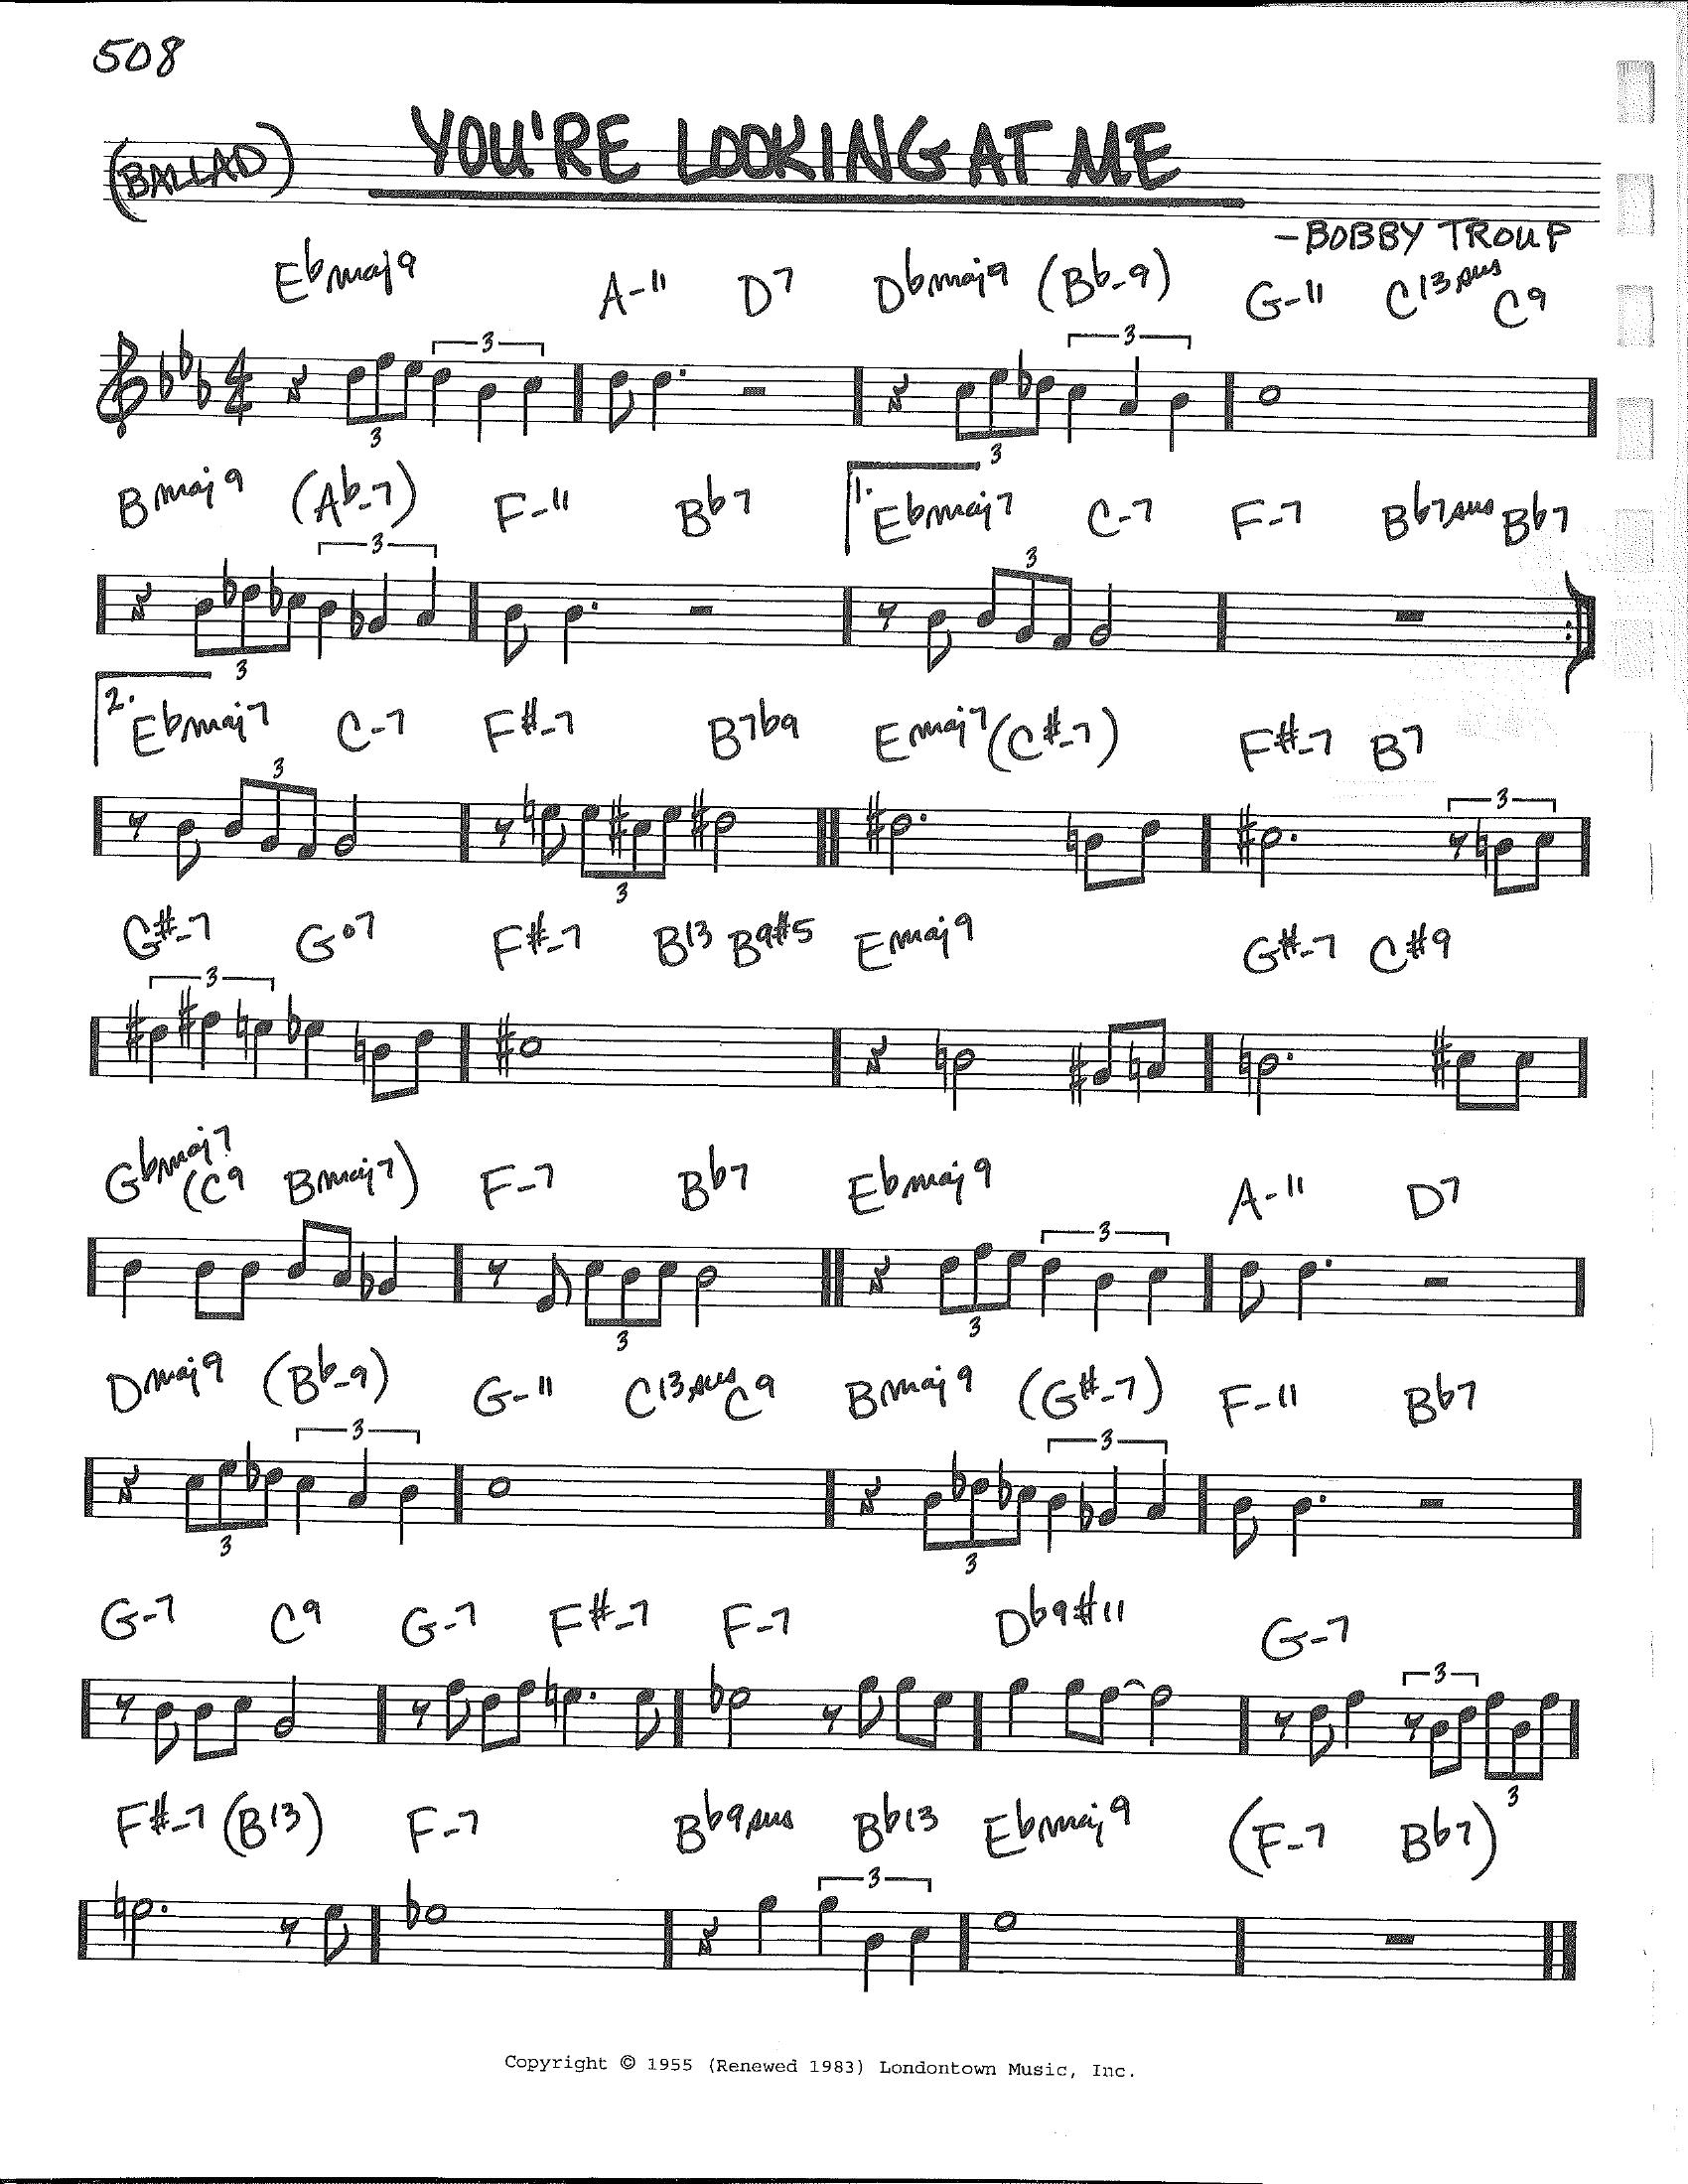 508
(BALLAD) YOU'RE LOOKING AT ME
-BOBBY TROUP
Ebmaj9 A-11 D7 Dbmaj9 (Bb-9) G-11 C13sus C9
3 3 3 3
4 4
Bmaj9 (Ab-7) F-11 Bb7 1. Ebmaj7 C-7 F-7 Bb7sus Bb7
3 3 3
2. Ebmaj7 C-7 F#-7 B7b9 Emaj7 (C#-7) F#-7 B7
3 3 3
G#-7 Go7 F#-7 B13 B9#5 Emaj9 G#-7 C#9
3
Gbmaj7 (C9 Bmaj7) F-7 Bb7 Ebmaj9 A-11 D7
3 3 3
Dmaj9 (Bb-9) G-11 C13sus C9 Bmaj9 (G#-7) F-11 Bb7
3 3 3 3
G-7 C9 G-7 F#-7 F-7 Db9#11 G-7
3 3
F#-7 (B13) F-7 Bb9sus Bb13 Ebmaj9 (F-7 Bb7)
3
Copyright © 1955 (Renewed 1983) Londontown Music, Inc.